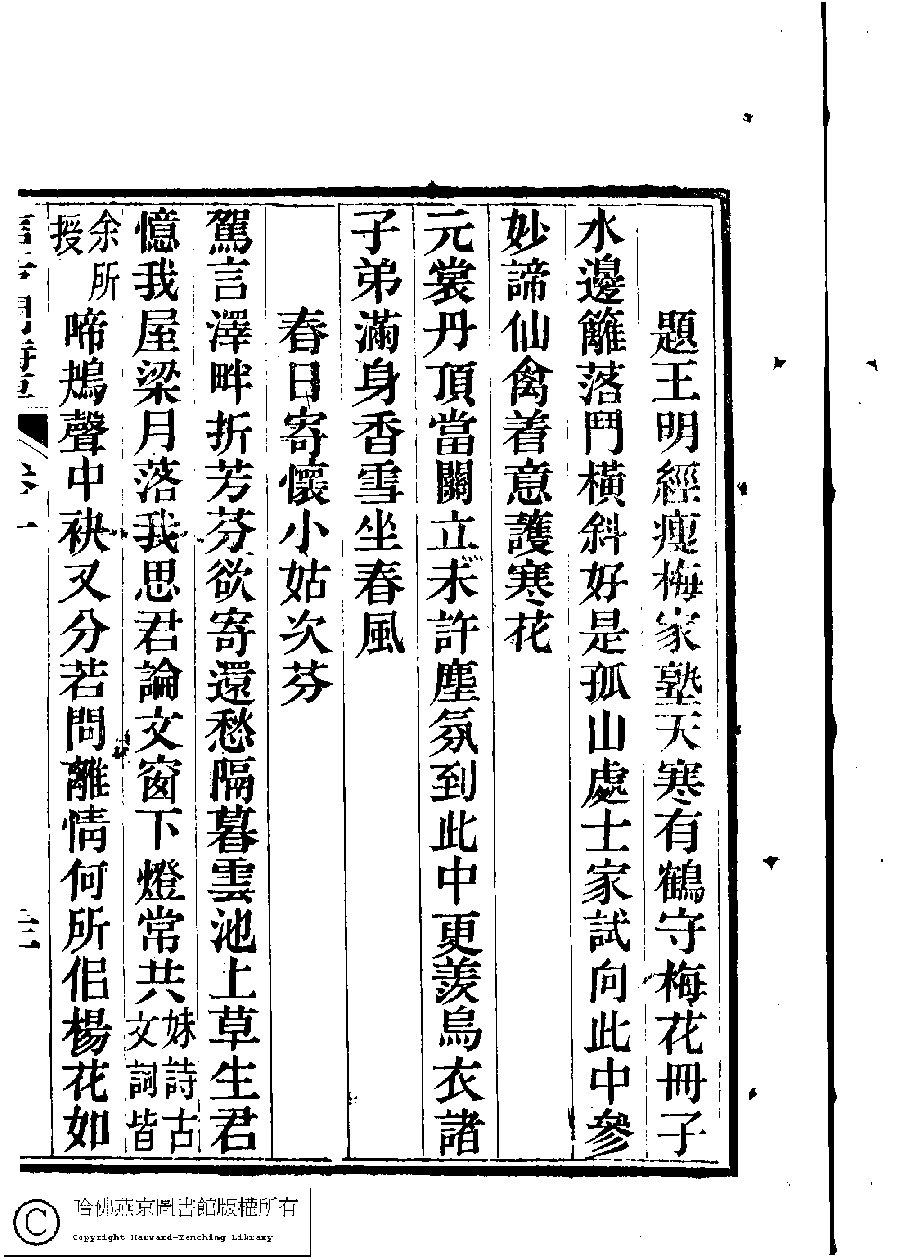 題王明經瘦梅家塾天寒有鶴守梅花冊子
水邊籬落鬥橫斜好是孤山處士家試向此中參
妙諦仙禽着意護寒花
元裳丹頂當關立未許塵氛到此中更羨烏衣諸
子弟滿身香雪坐春風
春日寄懷小姑次芬
駕言澤畔折芳芬欲寄還愁隔暮雲池上草生君
憶我屋梁月落我思君論文窗下燈常共妹詩古文詞皆
余所授啼鴂聲中袂又分若問離情何所佀楊花如
哈佛燕京圖書館版權所有
Copyright Harvard-Yenching Library